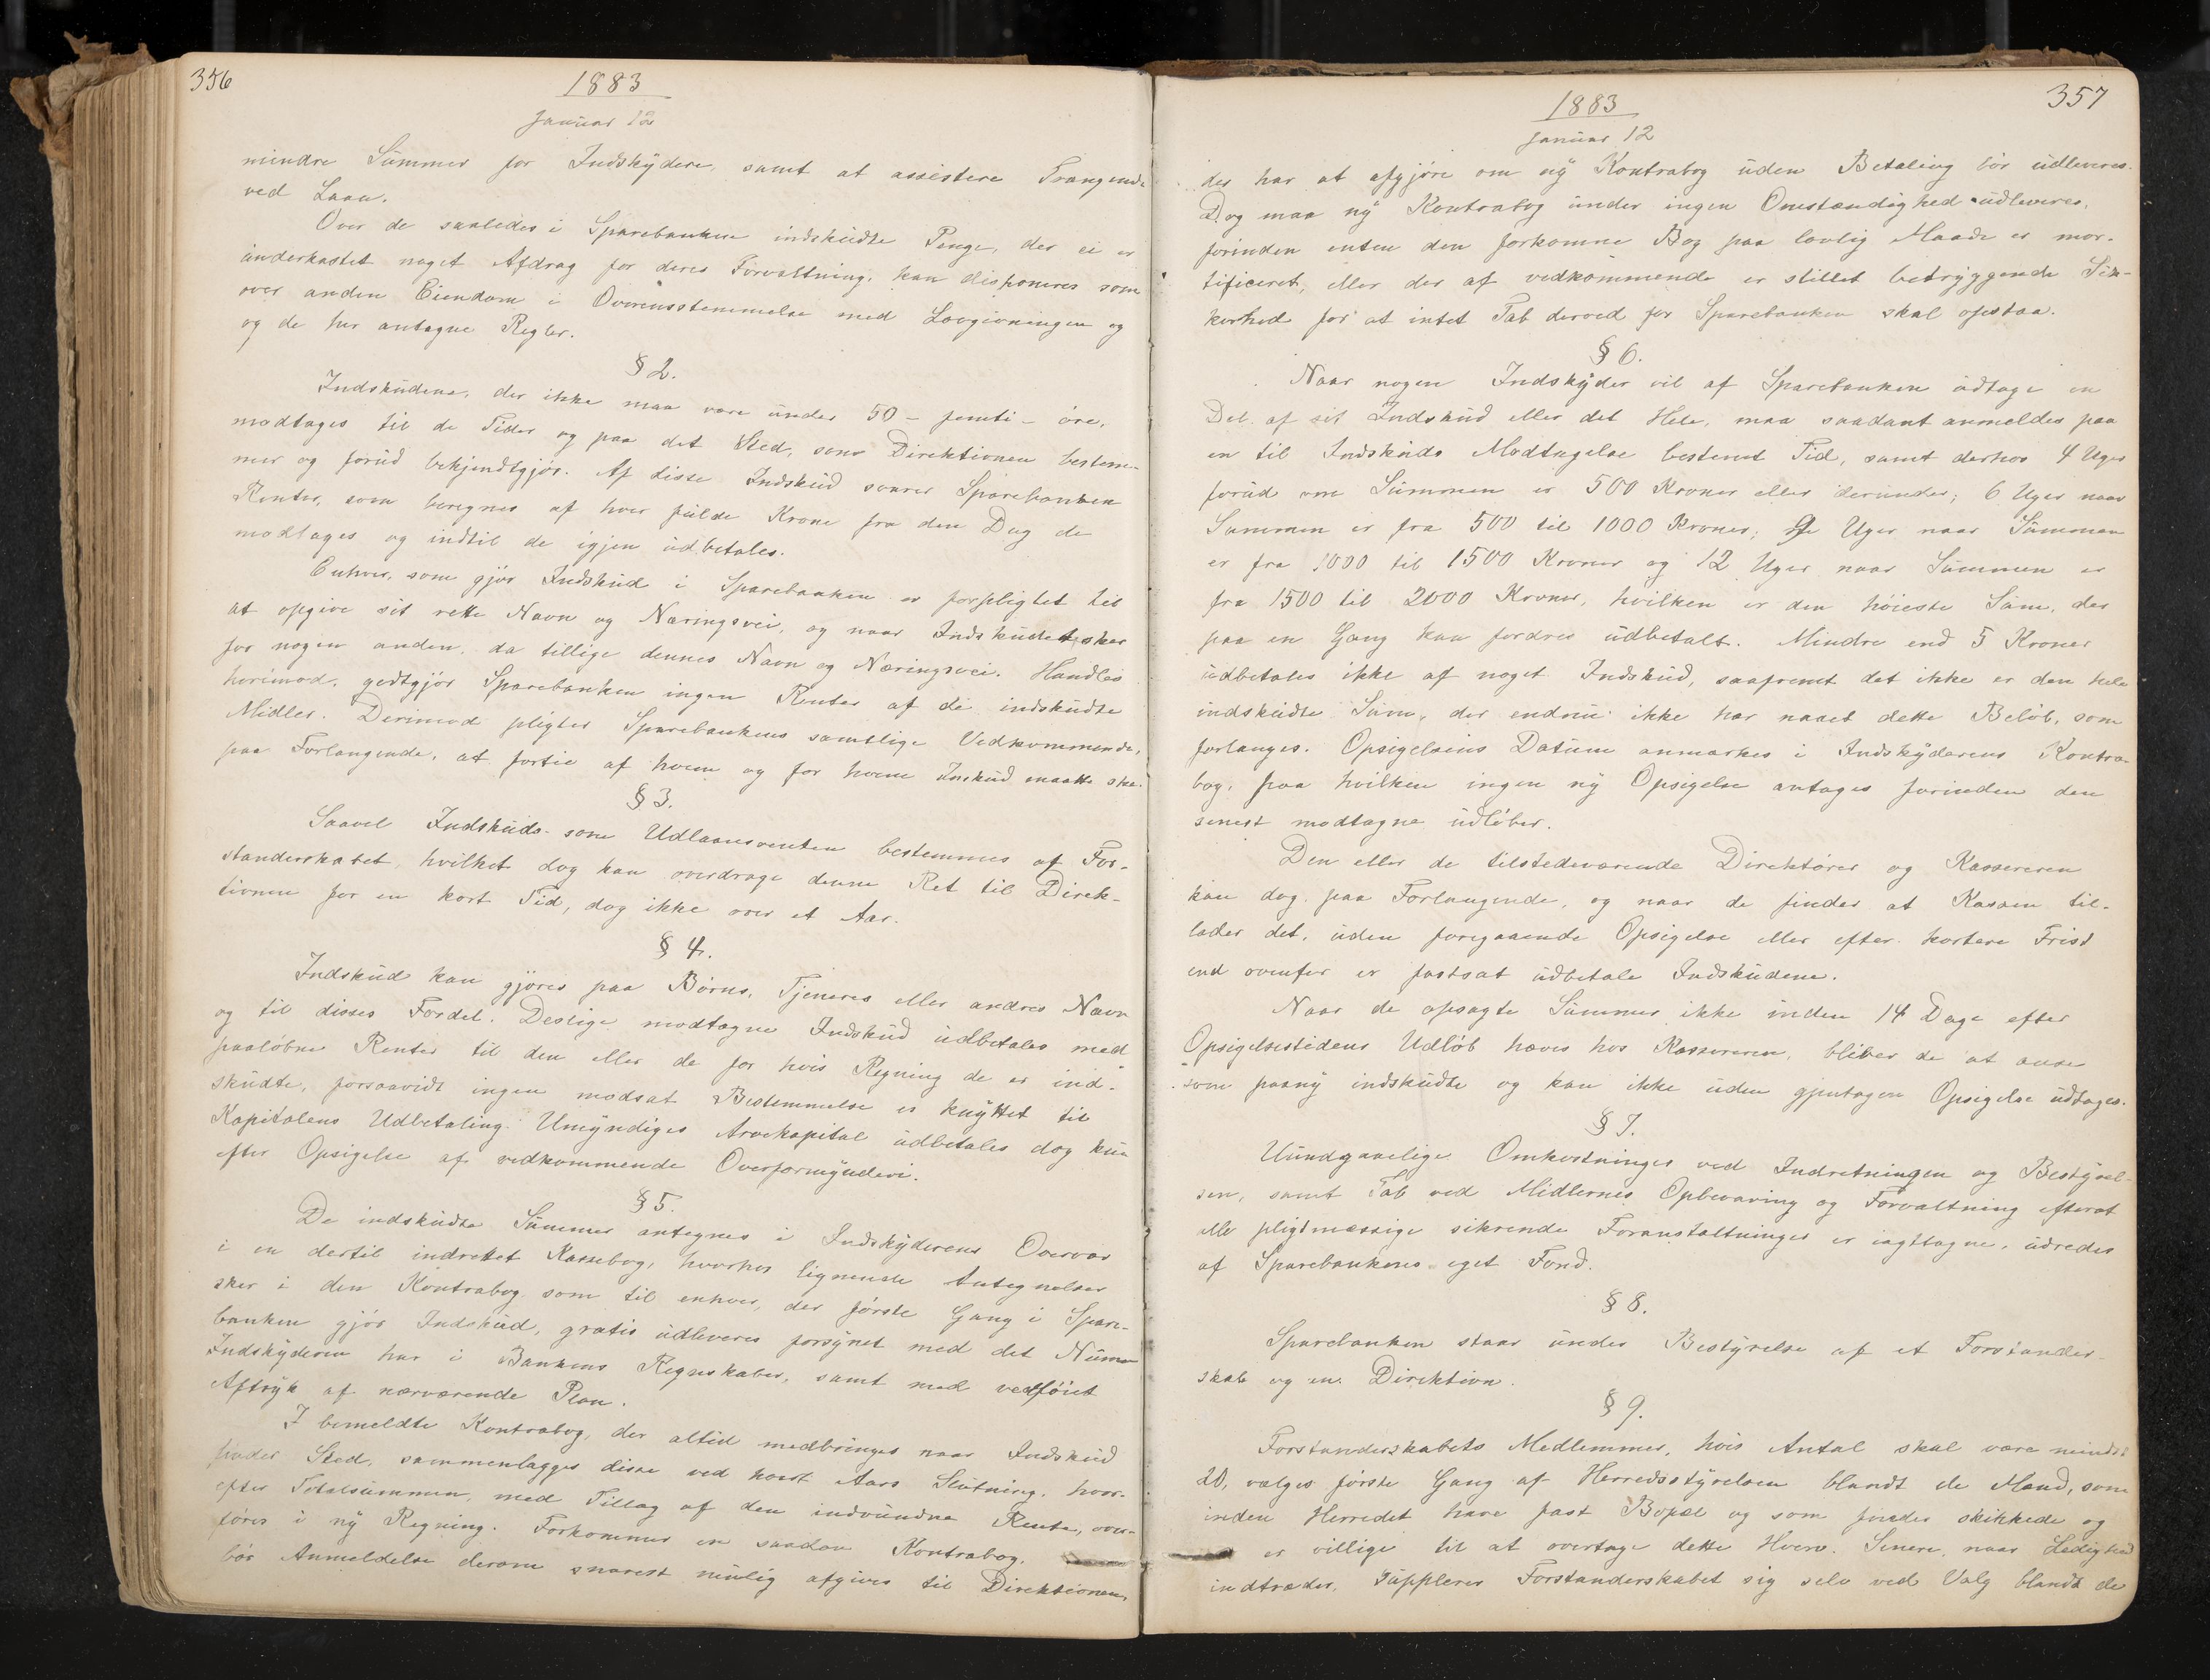 356
1883
Januar 12
mindre Summer for Indskydere, samt at assistere Trængende
ved Laan.
Over de saaledes i Sparebanken indskudte Penge, der ei er
underkastet noget Afdrag for deres Forvaltning, kan disponeres som
over anden Eiendom i Overensstemmelse med Lovgivningen og
og de her antagne Regler.
§ 2.
Indskudene, der ikke maa være under 50 - femti - øre,
modtages til de Tider og paa det Sted, som Direktionen bestem-
mer og forud bekjendtgjør. Af disse Indskud svarer Sparebanken
Renter, som beregnes af hver fulde Krone fra den Dag de
modtages og indtil de igjen udbetales.
Enhver, som gjør Indskud i Sparebanken er forpligtet til
at opgive sit rette Navn og Næringsvei, og naar Indskudet sker
for nogen anden, da tillige dennes Navn og Næringsvei. Handles
herimod, godtgjør Sparebanken ingen Renter af de indskudte
Midler. Derimod pligter Sparebankens samtlige Vedkommende,
paa Forlangende, at fortie af hvem og for hvem Inskud maatte ske.
§ 3.
Saavel Indskuds- som Udlaansrenten bestemmes af For-
standerskabet, hvilket dog kan overdrage denne Ret til Direk-
tionen for en kort Tid, dog ikke over et Aar.
§ 4.
Indskud kan gjøres paa Børns, Tjeneres eller andres Navn
og til disses Fordel. Deslige modtagne Indskud udbetales med
paaløbne Renter til den eller de for hvis Regning de er ind-
skudte, forsaavidt ingen modsat Bestemmelse er knyttet til
Kapitalens Udbetaling. Umyndiges Arvekapital udbetales dog kun
efter Opsigelse af vedkommende Overformynderi.
§ 5.
De indskudte Summer antegnes i Indskyderens Overvær
i en dertil indrettet Kassebog, hvorhos lignende Antegnelser
sker i den Kontrabog som til enhver, der første Gang i Spare-
banken gjør Indskud, gratis udleveres forsynet med det Numer
Indskyderen har i Bankens Regnskaber, samt med vedføiet
Aftryk af nærværende Plan.
I bemeldte Kontrabog, der altid medbringes naar Indskud
finder Sted, sammenlægges disse ved hvert Aars Slutning, hvor-
efter Totalsummen, med Tillæg af den indvundne Rente, over-
føres i ny Regning. Forkommer en saadan Kontrabog,
bør Anmeldelse derom snarest mulig afgives til Direktionen,
357
1883
Januar 12
der har at afgjøre om ny Kontrabog uden Betaling bør udleveres.
Dog maa ny Kontrabog under ingen Omstændighed udleveres,
forinden enten den forkomne Bog paa lovlig Maade er mor-
tificeret, eller der af vedkommende er stillet betryggende Sik-
kerhed for at intet Tab derved for Sparebanken skal opstaa.
§ 6.
Naar nogen Indskyder vil af Sparebanken udtage en
Del af sit Indskud eller det Hele, maa saadant anmeldes paa
en til Indskuds Modtagelse bestemt Tid, samt derhos 4 Uger
forud om Summen er 500 Kroner eller derunder; 6 Uger naar
Summen er fra 500 til 1000 Kroner; Uger naar Summen
er fra 1000 til 1500 Kroner og 12 Uger naar Summen er
fra 1500 til 2000 Kroner, hvilken er den høieste Sum, der
paa en Gang kan fordres udbetalt. Mindre end 5 Kroner
udbetales ikke af noget Indskud, saafremt det ikke er den hele
indskudte Sum, der endnu ikke har naaet dette Beløb, som
forlanges. Opsigelsens Datum anmærkes i Indskyderens Kontra-
bog, paa hvilken ingen ny Opsigelse antages forinden den
senest modtagne udløber.
Den eller de tilstedeværende Direktører og Kassereren
kan dog paa Forlangende, og naar de finder at Kassen til-
lader det, uden foregaaende Opsigelse eller efter kortere Frist
end ovenfor er fastsat udbetale Indskudene.
Naar de opsagte Summer ikke inden 14 Dage efter
Opsigelsestidens Udløb hæves hos Kassereren, bliver de at anse
som paany indskudte og kan ikke uden gjentagen Opsigelse udtages.
§ 7.
Uundgaaelige Omkostninger ved Indretningen og Bestyrel-
sen, samt Tab ved Midlernes Opbevaring og Forvaltning efterat
alle pligtmæssige sikrende Foranstaltninger er iagttagne, udredes
af Sparebankens eget Fond.
§ 8.
Sparebanken staar under Bestyrelse af et Forstander-
skab og en Direktion.
§ 9.
Forstanderskabets Medlemmer, hvis Antal skal være mindst
20, vælges første Gang af Herredsstyrelsen blandt de Mænd, som
inden Herredet have fast Bopæl og som findes skikkede og
er villige til at overtage dette Hverv. Senere, naar Ledighed
indtræder, supplerer Forstanderskabet sig selv ved Valg blandt de